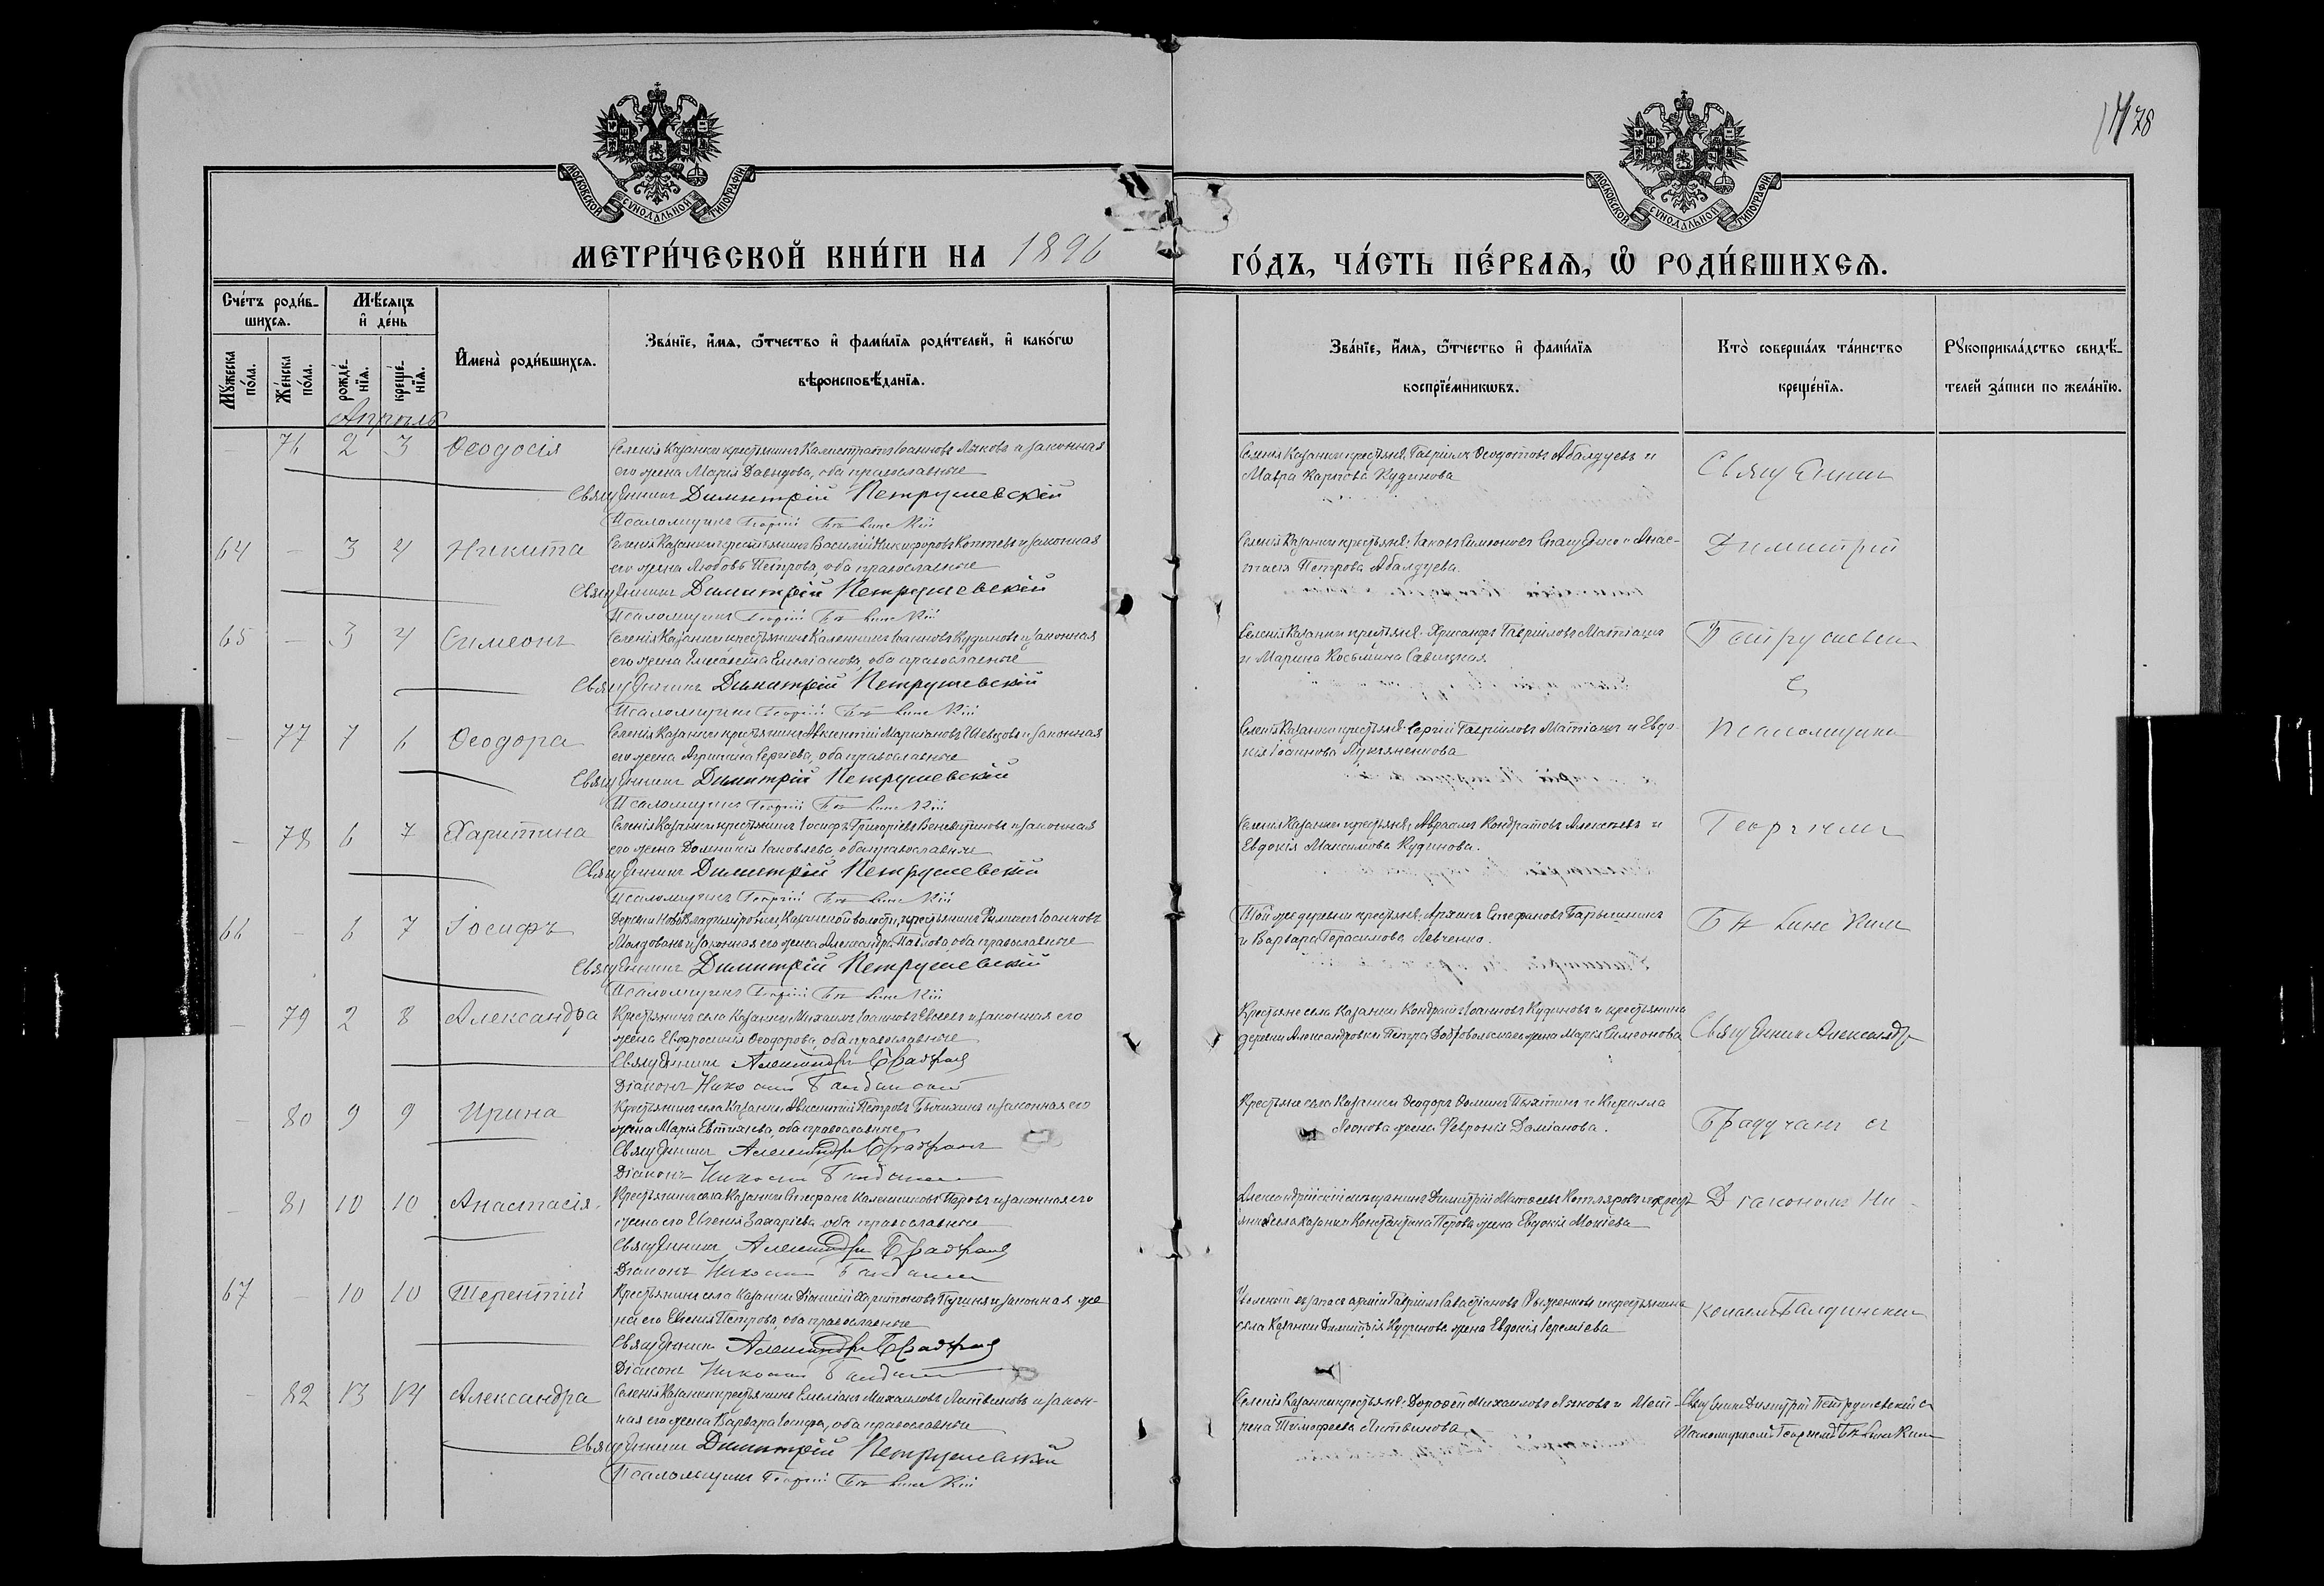 78
МОСКОВСКОЙ СУНОДАЛЬНОЙ ТИПОГРАФІИ
МОСКОВСКОЙ СУНОДАЛЬНОЙ ТИПОГРАФІИ
МЕТРИ́ЧЕСКОЙ КНИ́ГИ НА 1896
ГО́ДЪ, ЧА́СТЬ ПЕ́РВАѦ, Ѡ РОДИ́ВШИХСѦ.
Сче́тъ роди́в-
шихсѧ.
Мѣ́сѧцъ
и҆ де́нь
Мꙋ́жеска по́ла.
Же́нска по́ла.
рожде́-нїѧ.
креще́-нїѧ.
И҆мена̀ роди́вшихсѧ.
Зва́нїе, и҆́мѧ, ѻ҆́тчество и҆ фами́лїѧ роди́телей, и҆ како́гѡ
вѣроисповѣ́данїѧ.
Зва́нїе, и҆́мѧ, ѻ҆́тчество и҆ фами́лїѧ
воспрїе́мникѡвъ.
Кто̀ соверша́лъ та́инство
креще́нїѧ.
Рꙋкоприкла́дство свидѣ́-
телей за́писи по жела́нїю.
Апрѣль
76 2 3 Ѳеодосія
Селенія Казанки крестьянинъ Калистратъ Іоанновъ Лучковъ и законная
его жена Марія Давыдова, оба православные
Священникъ Димитрій Петрушевскій
Псаломщикъ Георгій
Селенія Казанки крестьяне: Гавріилъ Ѳеодотовъ Абалдуевъ и
Мавра Карпова Кудинова
Священникъ
64 – 3 4 Никита
Селенія Казанки крестьянинъ Василій Никифоровъ Коптевъ и законная
его жена Любовь Петрова, оба православные
Священникъ Димитрій Петрушевскій
Псаломщикъ Георгій
Селенія Казанки крестьяне: Іаковъ Симеоновъ и Анас-
тасія Петрова Абалдуева.
Димитрій
65 – 3 4 Симеонъ
Селенія Казанки крестьянинъ Каленникъ Іоанновъ Кудиновъ и законная
его жена Елисавета Емеліанова, оба православные
Священникъ Димитрій Петрушевскій
Псаломщикъ Георгій
Селенія Казанки крестьяне: Хрисанфъ Гавріиловъ Матіашъ
и Марина Косьмина Савицкая
Петрушевскій
съ
– 77 7 6 Ѳеодора
Селенія Казанки крестьянинъ Авксентій Маркіановъ Шевцовъ и законная
его жена Агрипина Сергіева, оба православные
Священникъ Димитрій Петрушевскій
Псаломщикъ Георгій
Селенія Казанки крестьяне: Сергій Гавріиловъ Матіашъ и Евдо-
кія Іоаннова Лукьяненкова
Псаломщикомъ
– 78 6 7 Харитина
Селенія Казанки крестьянинъ Іосифъ Григоріевъ Веневитиновъ и законная
его жена Домникія Іаковлева, оба православные
Священникъ Димитрій Петрушевскій
Псаломщикъ Георгій
Селенія Казанки крестьяне: Авраамъ Кондратовъ Алексѣевъ и
Евдокія Максимова Кудинова.
Георгіемъ
66 – 6 7 Іосифъ
Деревни Ново Владиміровки, Казанской волости, крестьянинъ Филиппъ Іоанновъ
Молдованъ и законная его жена Александра Павлова, оба православные
Священникъ Димитрій Петрушевскій
Псаломщикъ Георгій
Той же деревни крестьяне: Архипъ Стефановъ
и Варвара Герасимова Левченко.
79 2 8 Александра
Крестьянинъ села Казанки Михаилъ Іоанновъ Евсѣевъ и законная его
жена Евфросинія Ѳеодорова, оба православные
Священникъ Александръ
Діаконъ Николай
Крестьяне села Казанки Кондратъ Іоанновъ Кудиновъ и крестьянина
деревни Александровки Петра Добровольскаго жена Марія Симеонова
Священникъ Александръ
– 80 9 9 Ирина
Крестьянинъ села Казанки Авксентій Петровъ и законная его
жена Марія Евтихіева, оба православные
Священникъ Александръ
Діаконъ Николай
Крестьяне села Казанки Ѳеодоръ Ѳоминъ и Кирилла
Леонова жена Февронія Даміанова.
съ
– 81 10 10 Анастасія
Крестьянинъ села Казанки Стефанъ Калинниковъ Перовъ и законная его
жена его Евгенія Захаріева оба православные
Священникъ Александръ
Діаконъ Николай
Александрійскій мѣщанинъ Димитрій Матѳеевъ Котляровъ и крест-
янина села Казанки Константина Перова жена Евдокія Мокіева
Діакономъ Ни-
67 – 10 10 Терентій
Крестьянинъ села Казанки Діонисій Харитоновъ и законная же
на его Евгенія Петрова, оба православные
Священникъ Александръ
Діаконъ Николай
Уволенный въ запасъ арміи Гавріилъ Савастіановъ и крестьянина
села Казанки Димитрія Кудинова жена Евдокія Іереміева
колаемъ
– 82 13 14 Александра
Селенія Казанки крестьянинъ Емеліанъ Михаиловъ Литвиновъ и закон-
ная его жена Варвара Іосифова, оба православные
Священникъ Димитрій Петрушевскій
Псаломщикъ Георгій
Селенія Казанки крестьяне: Дороѳей Михаиловъ Лучковъ и Мат-
рена Тимоѳеева Литвинова
Священникъ Димитрій Петрушевскій съ
Псаломщикомъ Георгіемъ